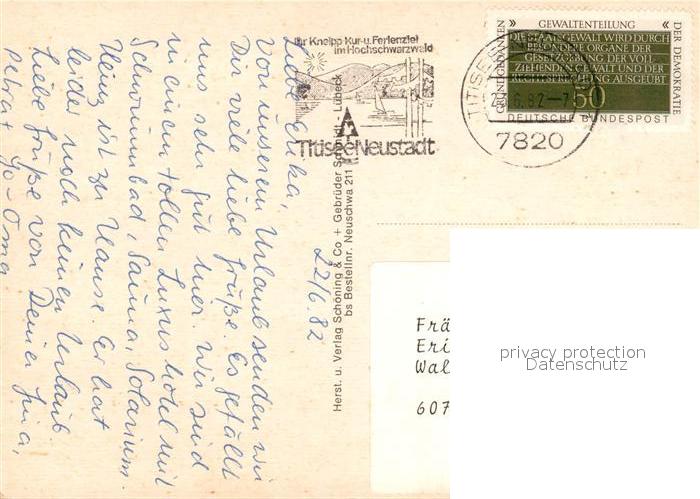 Liebe Erika,
Von unserem Urlaub senden wir
Dir viele liebe Grüße. Es gefällt
uns sehr gut hier. Wir sind
in einem tollen Luxushotel mit
Schwimmbad, Sauna, Solarium.
Heinz ist zu Hause. Er hat
leider noch keinen Urlaub
Liebe Grüße von Deiner
Petra + Jo - Oma
22/6.82
Herst. u. Verlag Schöning & Co + Gebrüder Schmidt, Lübeck
bs Bestellnr. Neuschwa 211
Ihr Kneipp-Kur-u.Ferienziel
im Hochschwarzwald
TitiseeNeustadt
TITISEE-N
6.82--7
7820
GRUNDGEDANKEN
» GEWALTENTEILUNG «
DER DEMOKRATIE
DIE STAATSGEWALT WIRD DURCH
BESONDERE ORGANE DER
GESETZGEBUNG, DER VOLL-
ZIEHENDEN GEWALT UND DER
RECHTSPRECHUNG AUSGEÜBT
50
DEUTSCHE BUNDESPOST
Frä
Eri
Wal
607
privacy protection
Datenschutz